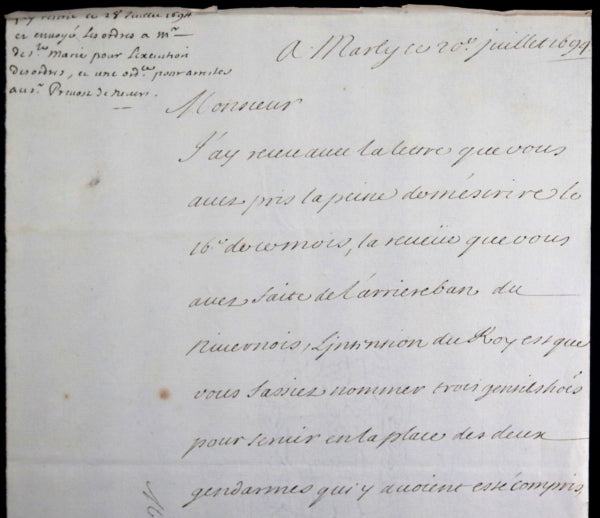 et envoyé Les ordres a mr.
de ste. Marie pour L'execution
des ordres, et une ordce. pour
au sr. Prevost de nevers.
A Marly ce 20e. juillet 1694
Monsieur
J'ay receu avec la lettre que vous
avez pris la peine de m'escrire le
16e. de ce mois, la reveüe que vous
avez faite de l'arriereban du
Nivernois, L'intention du Roy est que
vous fassiez nommer trois gentilshoes.
pour servir en la place des deux
gendarmes qui y avoient esté compris,